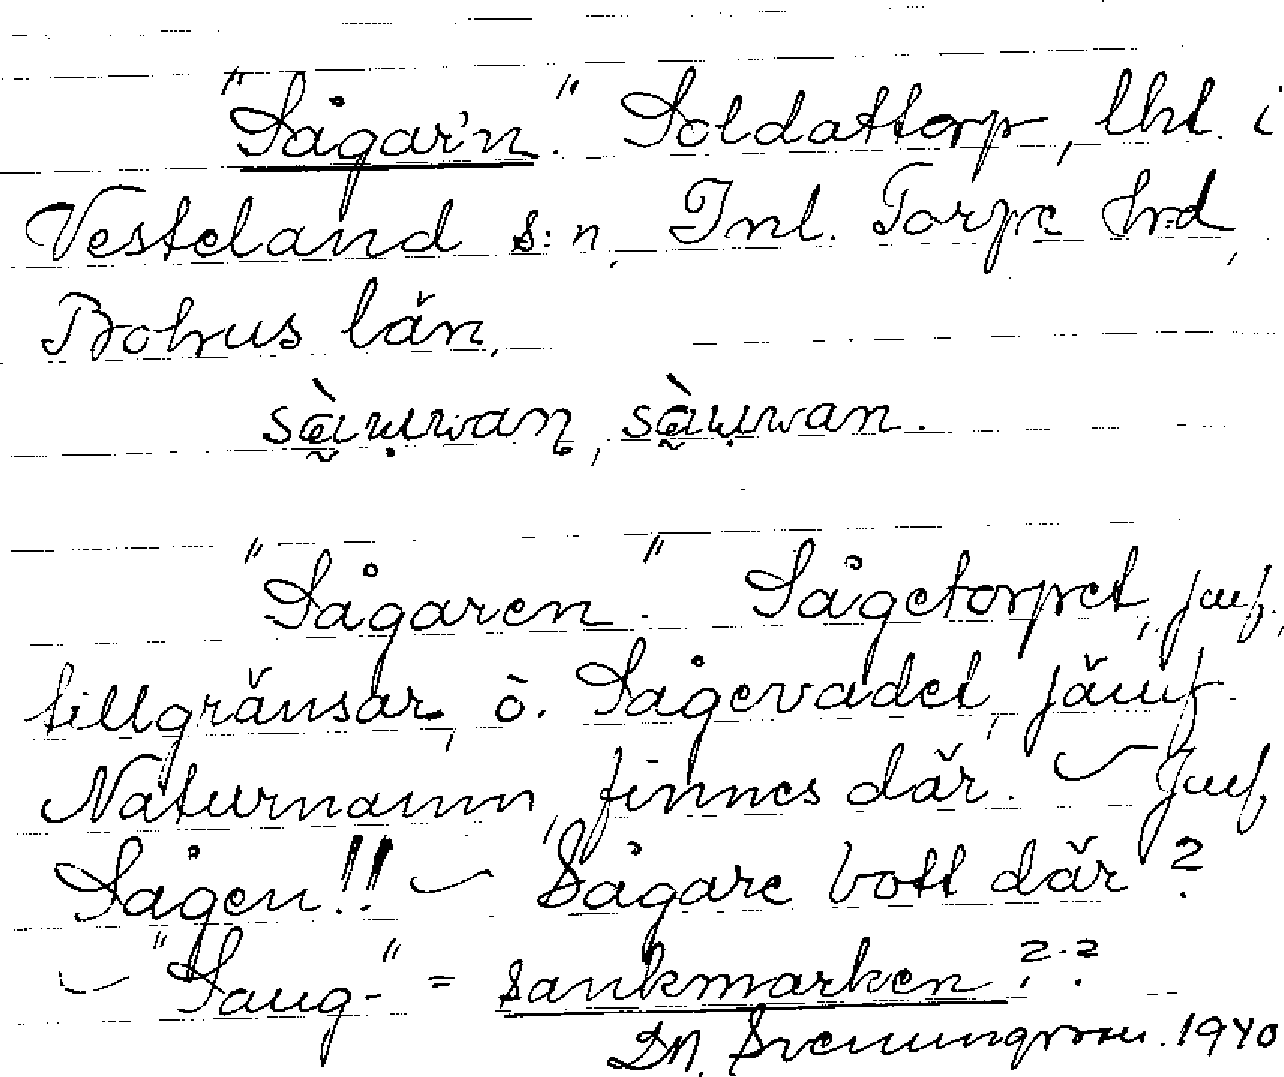 "Sågar'n." Soldattorp, lht. i
Vesteland s:n, Inl. Torpe hrd,
Bohus län.
"Sågaren." Sågetorpet, jmf.
tillgränsar, ò. Sågevadet, jämf.
Naturnamn, finnes där. – Jmf,
Sågen!! – Sågare bott där?
– "Saug-" = sankmarken??
1940